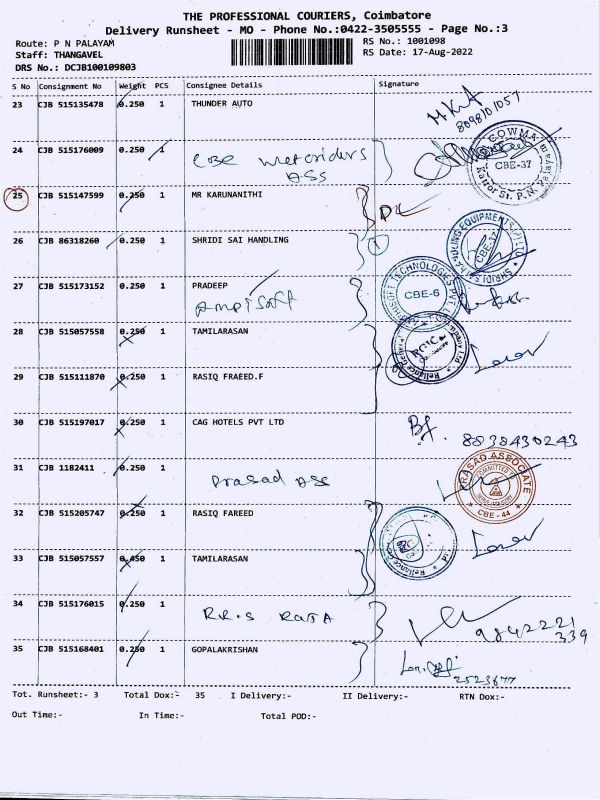 THE PROFESSIONAL COURIERS, Coimbatore
Delivery Runsheet - MO - Phone No.:0422-3505555 - Page No.:3
Route: P N PALAYAM
Staff: THANGAVEL
DRS No.: DCJB100109803
RS No.: 1001098
RS Date: 17-Aug-2022
S No Consignment No Weight PCS Consignee Details Signature
23 CJB 515135478 0.250 1 THUNDER AUTO
8098101057
24 CJB 515176009 0.250 1 CBE
ASS
COWMA
CBE-37
25 CJB 515147599 0.250 1 MR KARUNANITHI
26 CJB 86318260 0.250 1 SHRIDI SAI HANDLING 1
HANDLING EQUIPMENTS
CBE-37
SHRIDI
27 CJB 515173152 0.250 1 PRADEEP
Ampisoft
TECHNOLOGIES
CBE-6
28 CJB 515057558 0.250 1 TAMILARASAN
29 CJB 515111870 0.250 1 RASIQ FRAEED.F
30 CJB 515197017 0.250 1 CAG HOTELS PVT LTD
8838430243
31 CJB 1182411 0.250 1 Prasad Ass
PRASAD ASSOCIATE
CBE - 44
32 CJB 515205747 0.250 1 RASIQ FAREED
33 CJB 515057557 0.450 1 TAMILARASAN
34 CJB 515176015 0.250 1 R.K.S RAJA
9842221
339
35 CJB 515168401 0.250 1 GOPALAKRISHAN
2523677
Tot. Runsheet:- 3 Total Dox:- 35 I Delivery:- II Delivery:- RTN Dox:-
Out Time:- In Time:- Total POD:-